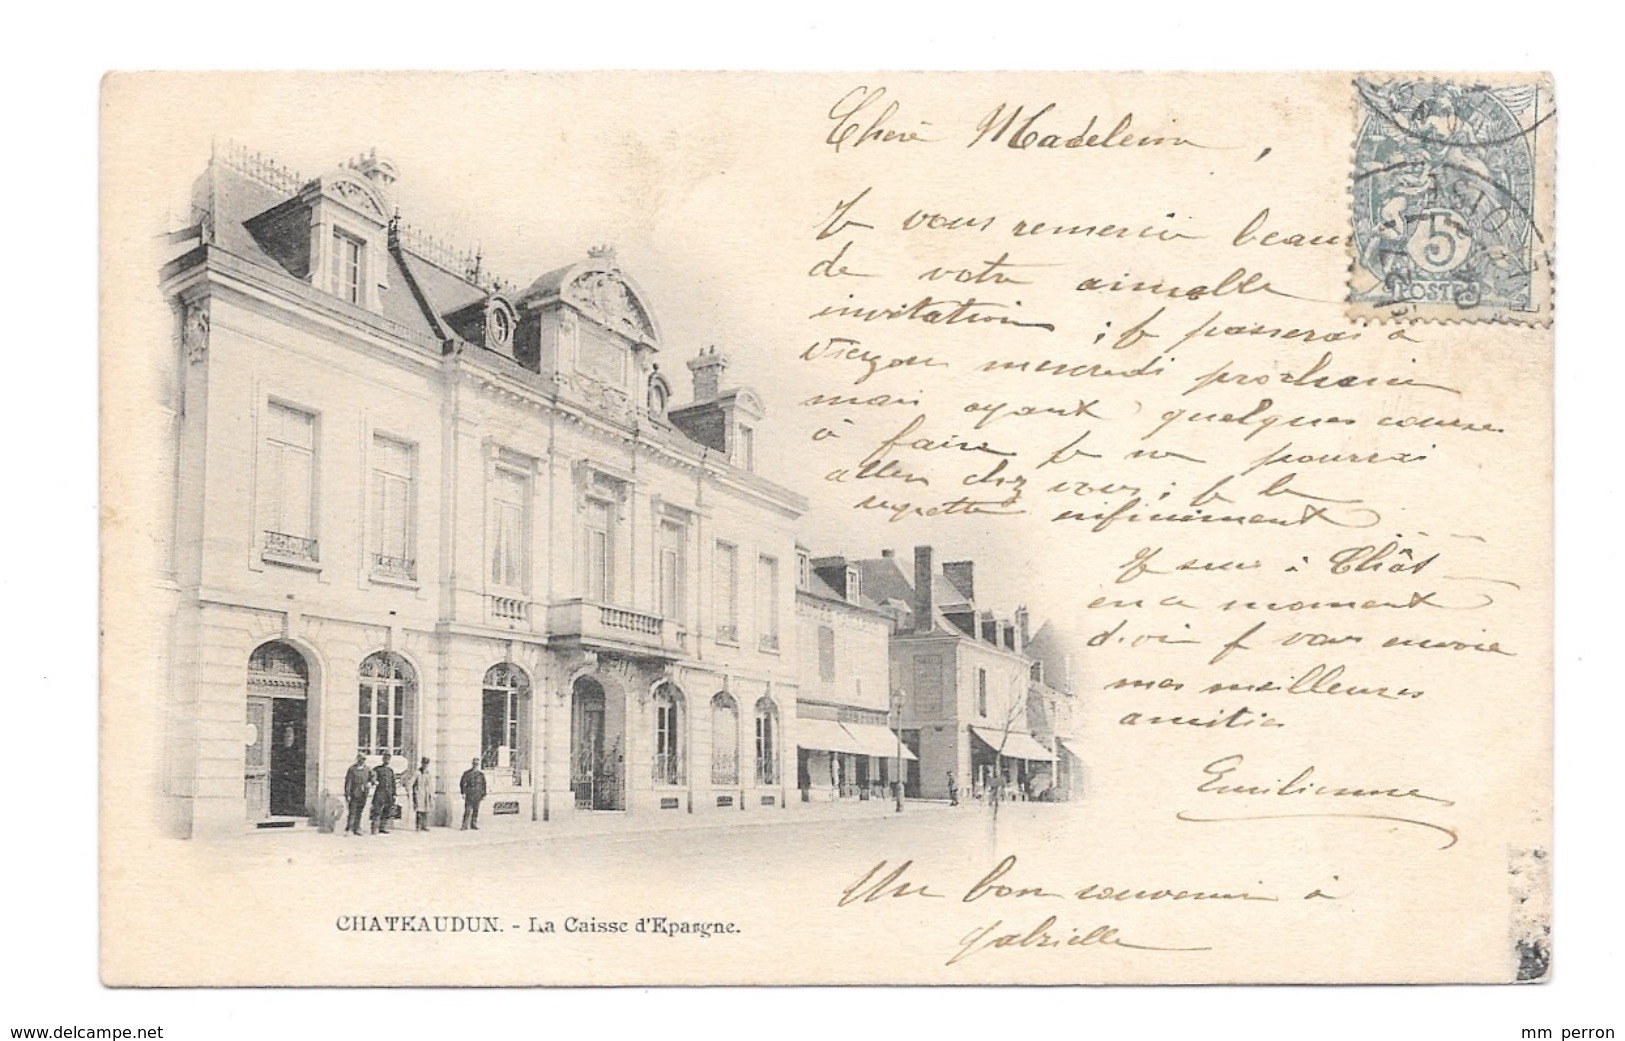 Chère Madeleine,
Je vous remercie beau
de votre aimable
invitation ; je passerai à
Vierzon mercredi prochain
mais ayant quelques courses
à faire je ne pourrai
aller chez vous ; je le
regrette infiniment
Je suis à Chât
en ce moment
d'où je vous envoie
mes meilleures
amitiés
Emilienne
Un bon souvenir à
Gabrielle
5
POSTES
CHATEAUDUN. - La Caisse d'Epargne.
www.delcampe.net
mm perron